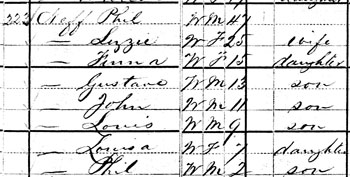 Neff Phil W M 47
— Lizzie W F 25 wife
— Anna W F 15 daughter
— Gustave W M 13 son
— John W M 11 son
— Louis W M 9 son
— Louisa W F 7 daughter
— Phil W M 2 son